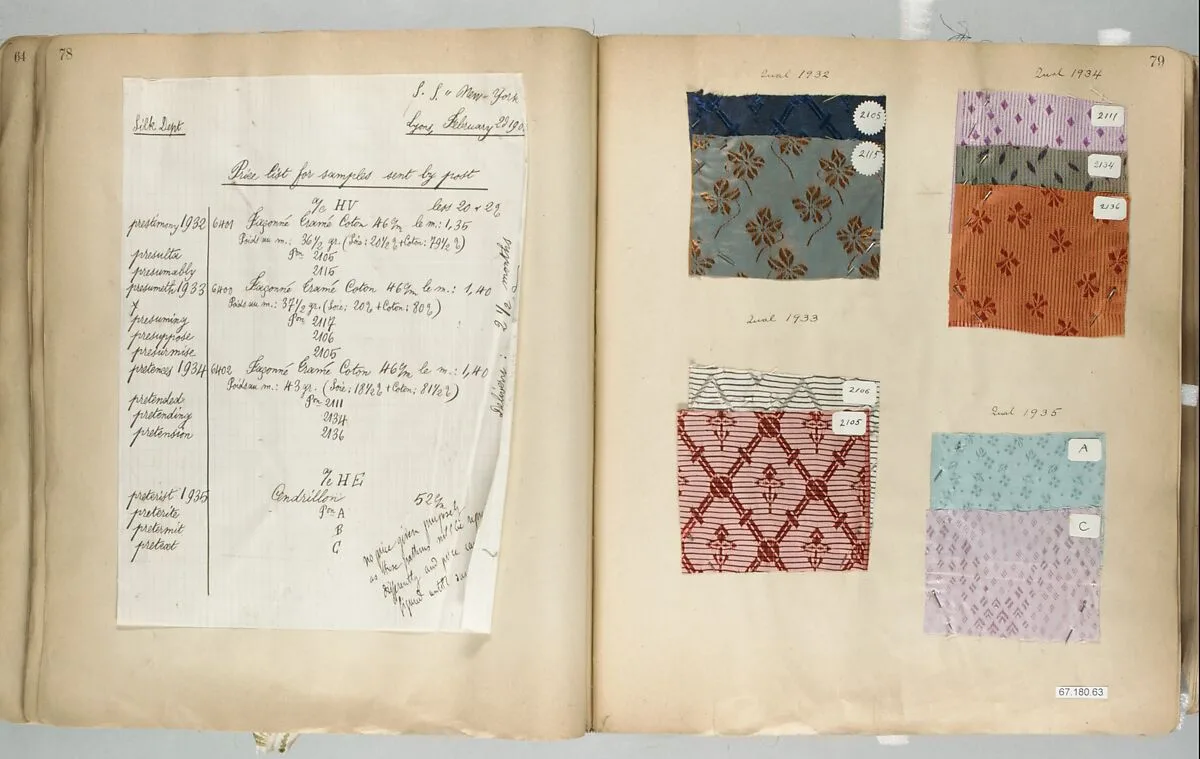 64
78
S. S. "New-York
Silk Dept
Lyons, February
Price list for samples sent by post
HV less 20 + 2%
prestimony 1932 6401 Façonné Tramé Coton 46 le m.: 1,35
Poids au m.: 36 1/2 gr. (Soie: + Coton:
presulta 2105
presumably 2115
presumeth 1933 Façonné Tramé Coton 46 le m.: 1,40
Poids au m.: 37 1/2 gr. (Soie: 20% + Coton: 80%)
presuming 2117
presuppose 2106
presurmise 2105
1934 6402 Façonné Tramé Coton 46 le m.: 1,40
Poids au m.: 43 gr. (Soie: + Coton:
pretended 2111
pretending 2134
pretension 2136
Delivery: 2 1/2 months
HE
preterist 1935 Cendrillon
preterite A
pretermit B
pretext C
no price given purposely
as these patterns will be
differently and price
figured until
79
Qual 1932
2105
2115
Qual 1934
2111
2134
2136
Qual 1933
2106
2105
Qual 1935
A
C
67.180.63